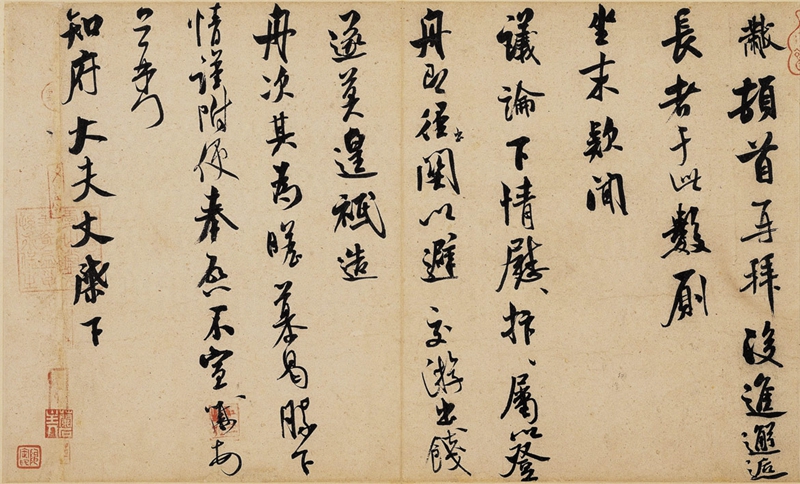 黻頓首再拜後進邂逅
長者于此數厠
坐末款聞
議論下情慰、抃、屬以登
舟即徑出關以避交游出餞
遂莫遑祗造
舟次其為瞻慕曷勝下
情謹附便奉啓不宣黻
知府大夫丈棨下